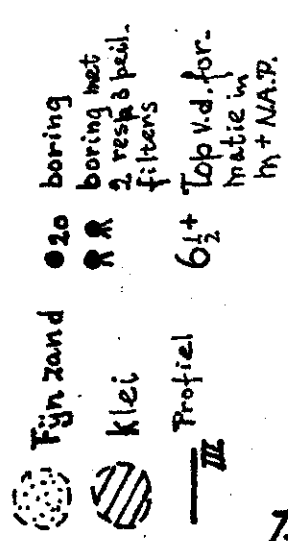 Fijn zand
Klei
Profiel
III
●20 boring
boring met
2 resp. 3 peil-
filters
6½+ Top v.d. for-
matie in
m + N.A.P.